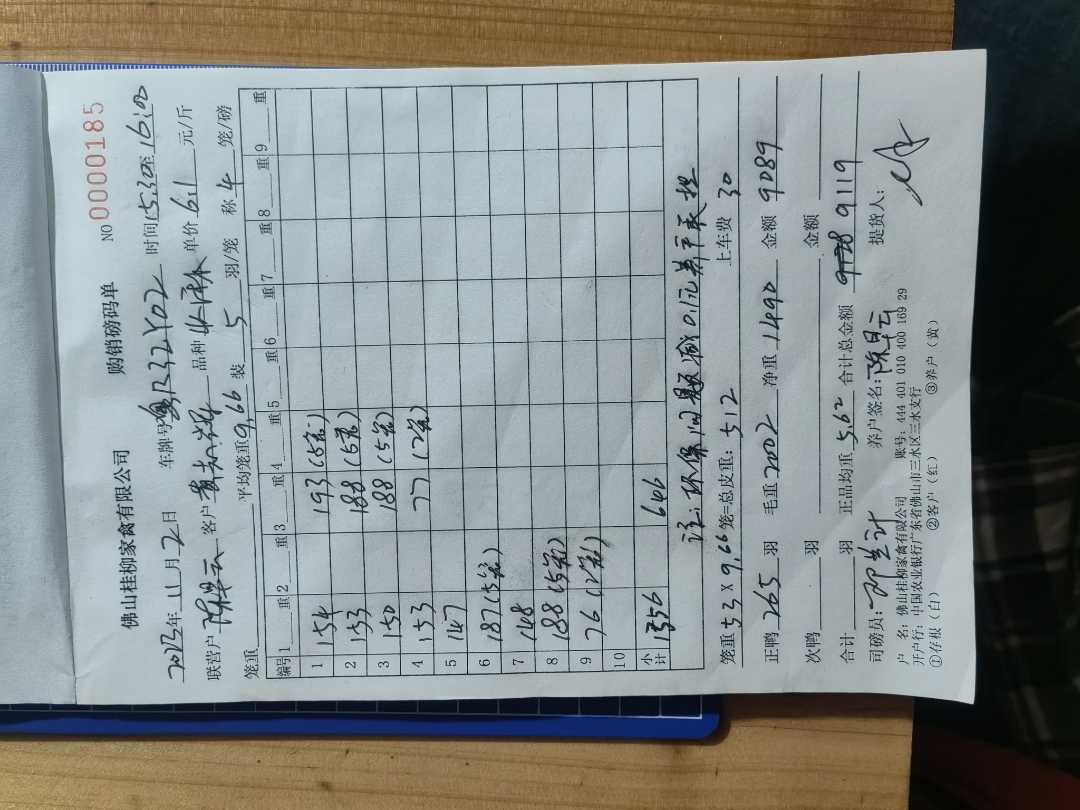 佛山桂柳家禽有限公司 购销磅码单 NO 0000185
2023年11月2日 车牌号粤R32Y02 时间15:30至16:00
联营户陈早云 客户 品种 单价6.1元/斤
笼重 平均笼重9.66 装5羽/笼 称4笼/磅
编号 1 重 2 重 3 重 4 重 5 重 6 重 7 重 8 重 9 重
1 154 193(5笼)
2 153 188(5笼)
3 150 188(5笼)
4 153 77(2笼)
5 147
6 187(5笼)
7 148
8 188(5笼)
9 76(2笼)
10
小计 1356 646
注:环保问题减0.1元养户承担
笼重53×9.66笼=总皮重:512 上车费30
正鸭265羽 毛重2002 净重1490 金额9089
次鸭 羽 金额
合计 羽 正品均重5.62 合计总金额 9119
司磅员: 养户签名:陈早云 提货人:
户 名:佛山桂柳家禽有限公司 账号:444 401 010 400 169 29
开户行:中国农业银行广东省佛山市三水区三水支行
①存根(白) ②客户(红) ③养户(黄)